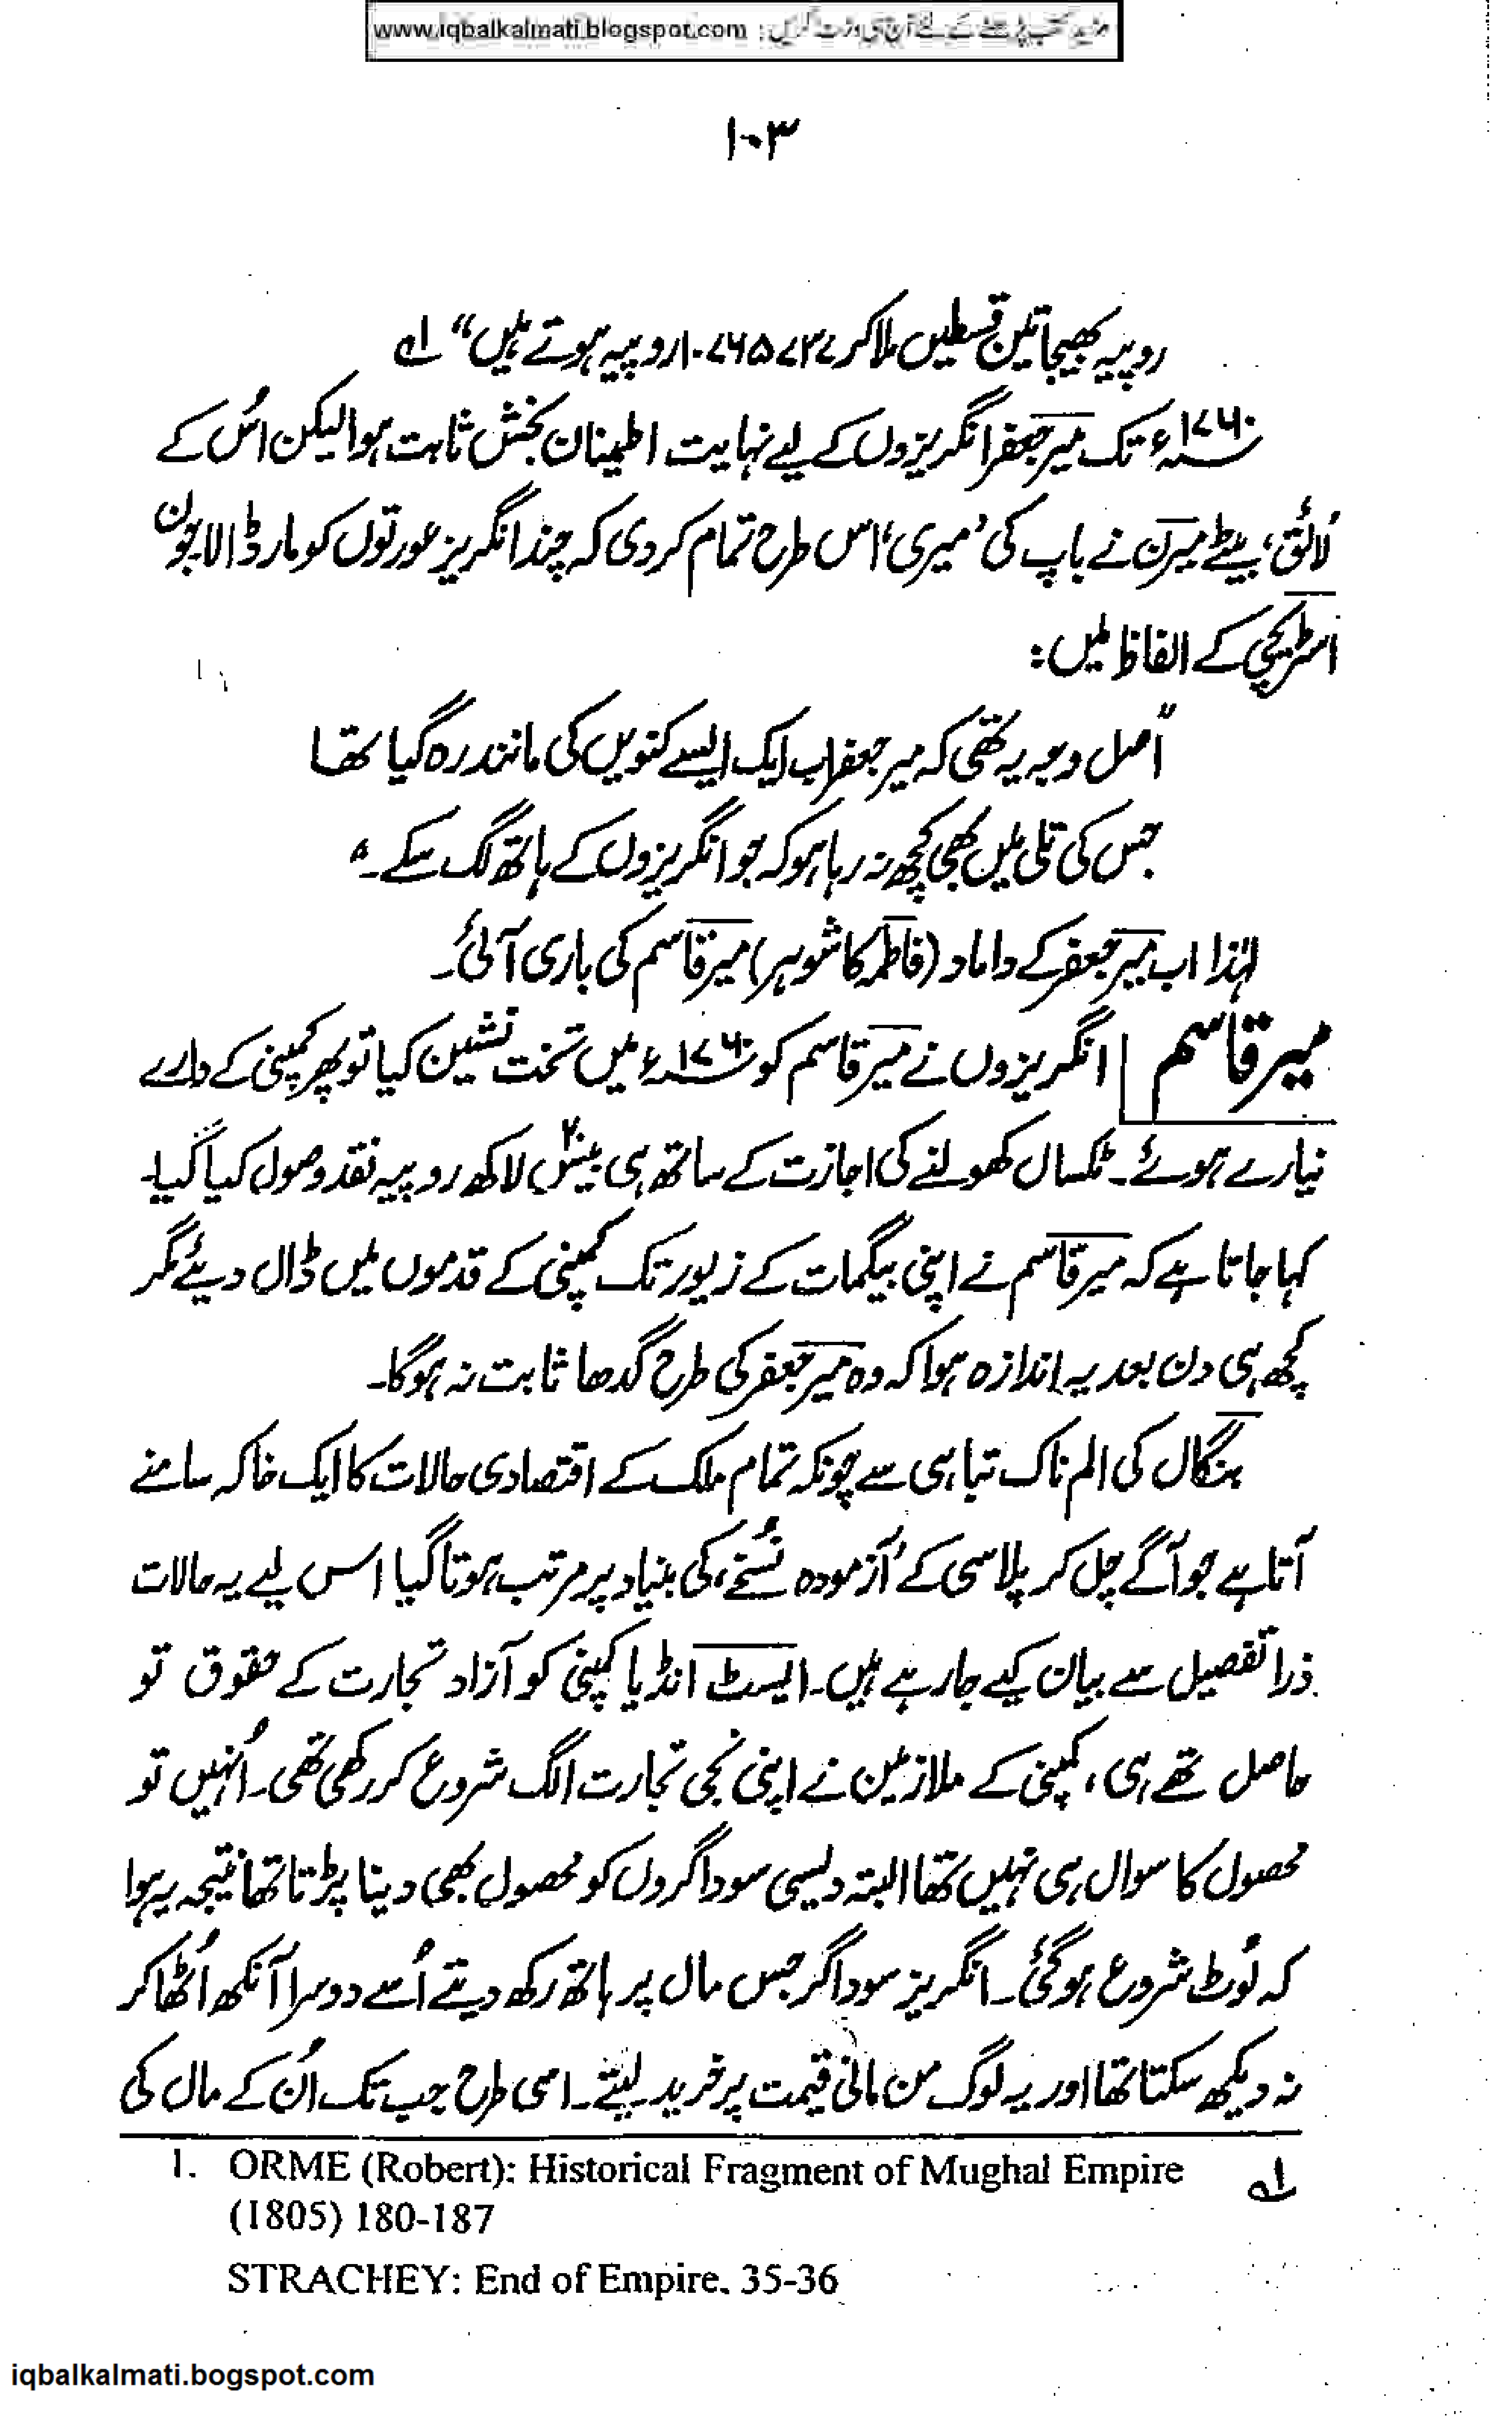 www.iqbalkalmati.blogspot.com : مزید کتب پڑھنے کے لئے آج ہی وزٹ کریں
۱۰۳
روپیہ بھیجا تین قسطیں ملا کر ۱۰۷۶۵۷۳۷ روپیہ ہوتے ہیں“ ۱؎
۱۷۶۰ء تک میر جعفر انگریزوں کے لیے نہایت اطمینان بخش ثابت ہوا لیکن اُس کے
’لائق‘ بیٹے میرن نے باپ کی ’میری‘ اس طرح تمام کر دی کہ چند انگریز عورتوں کو مار ڈالا۔ جون
اسٹریچی کے الفاظ میں:
”اصل وجہ یہ تھی کہ میر جعفر اب ایک ایسے کنویں کی مانند رہ گیا تھا
جس کی تلی میں بھی کچھ نہ رہا ہو کہ جو انگریزوں کے ہاتھ لگ سکے۔“
لہٰذا اب میر جعفر کے داماد (فاطمہ کا شوہر) میر قاسم کی باری آئی۔
میر قاسم انگریزوں نے میر قاسم کو ۱۷۶۰ء میں تخت نشین کیا تو پھر کمپنی کے وارے
نیارے ہوئے۔ ٹکسال کھولنے کی اجازت کے ساتھ ہی بیس ۲۰ لاکھ روپیہ نقد وصول کیا گیا۔
کہا جاتا ہے کہ میر قاسم نے اپنی بیگمات کے زیور تک کمپنی کے قدموں میں ڈال دیئے مگر
کچھ ہی دن بعد یہ اندازہ ہوا کہ وہ میر جعفر کی طرح گدھا ثابت نہ ہوگا۔
بنگال کی الم ناک تباہی سے چونکہ تمام ملک کے اقتصادی حالات کا ایک خاکہ سامنے
آتا ہے جو آگے چل کر پلاسی کے ’آزمودہ نسُخے‘ کی بنیاد پر مرتب ہوتا گیا اس لیے یہ حالات
ذرا تفصیل سے بیان کیے جا رہے ہیں۔ ایسٹ انڈیا کمپنی کو آزاد تجارت کے حقوق تو
حاصل تھے ہی، کمپنی کے ملازمین نے اپنی نجی تجارت الگ شروع کر رکھی تھی۔ اُنہیں تو
محصول کا سوال ہی نہیں تھا البتہ دیسی سوداگروں کو محصول بھی دینا پڑتا تھا نتیجہ یہ ہوا
کہ لُوٹ شروع ہو گئی۔ انگریز سوداگر جس مال پر ہاتھ رکھ دیتے اُسے دوسرا آنکھ اُٹھا کر
نہ دیکھ سکتا تھا اور یہ لوگ من مانی قیمت پر خرید لیتے۔ اسی طرح جب تک اُن کے مال کی
1. ORME (Robert): Historical Fragment of Mughal Empire ۱؎
(1805) 180-187
STRACHEY: End of Empire. 35-36
iqbalkalmati.bogspot.com